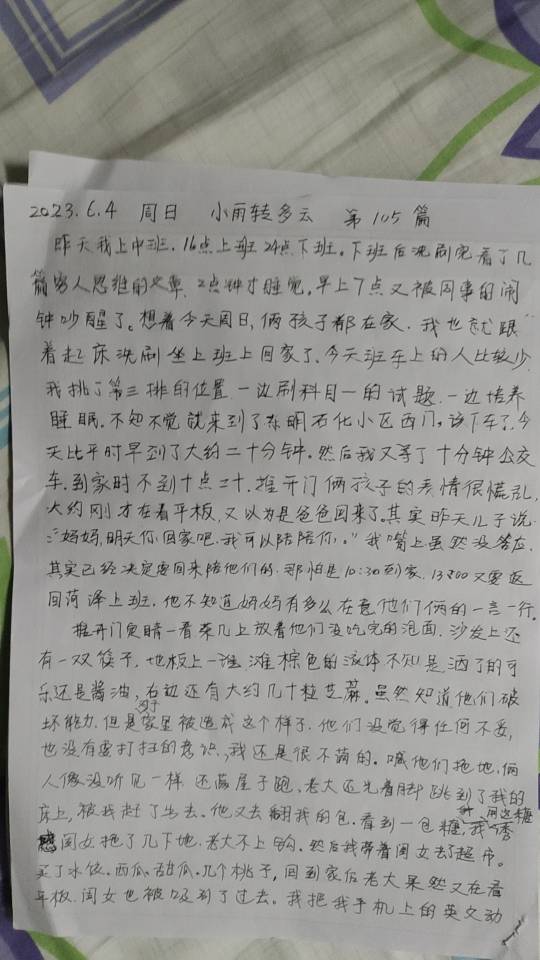 2023.6.4 周日 小雨转多云 第105篇
昨天我上中班.16点上班24点下班.下班后洗刷完看了几
篇穷人思维的文章.2点钟才睡觉.早上7点又被同事的闹
钟吵醒了。想着今天周日,俩孩子都在家.我也就跟
着起床洗刷坐上班上回家了.今天班车上的人比较少.
我挑了第三排的位置.一边刷科目一的试题.一边培养
睡眠.不知不觉就来到了东明石化小区西门,该下车了.今
天比平时早到了大约二十分钟.然后我又等了十分钟公交
车.到家时不到十点二十.推开门俩孩子的表情很慌乱,
大约刚才在看平板,又以为是爸爸回来了.其实昨天儿子说
:"妈妈,明天你回家吧.我可以陪陪你."我嘴上虽然没答应.
其实已经决定要回来陪他们的.那怕是10:30到家.13:00又要返
回菏泽上班.他不知道妈妈有多么在意他们俩的一言一行.
推开门定睛一看茶几上放着他们没吃完的泡面.沙发上还
有一双筷子.地板上一滩棕色的液体不知是洒了的可
乐还是酱油,右边还有大约几十粒芝麻.虽然知道他们破
坏能力.但是对家里被造成这个样子.他们没觉得任何不妥,
也没有要打扫的意识,我还是很不满的.喊他们拖地.俩
人像没听见一样 还满屋子跑.老大还光着脚跳到了我的
床上,被我赶了出去.他又去翻我的包.看到一包糖,我
闺女拖了几下地.老大不上钩.然后我带着闺女去了超市.
买了水饺.西瓜.甜瓜.几个桃子,回到家后老大果然又在看
平板.闺女也被吸引了过去.我把我手机上的英文动